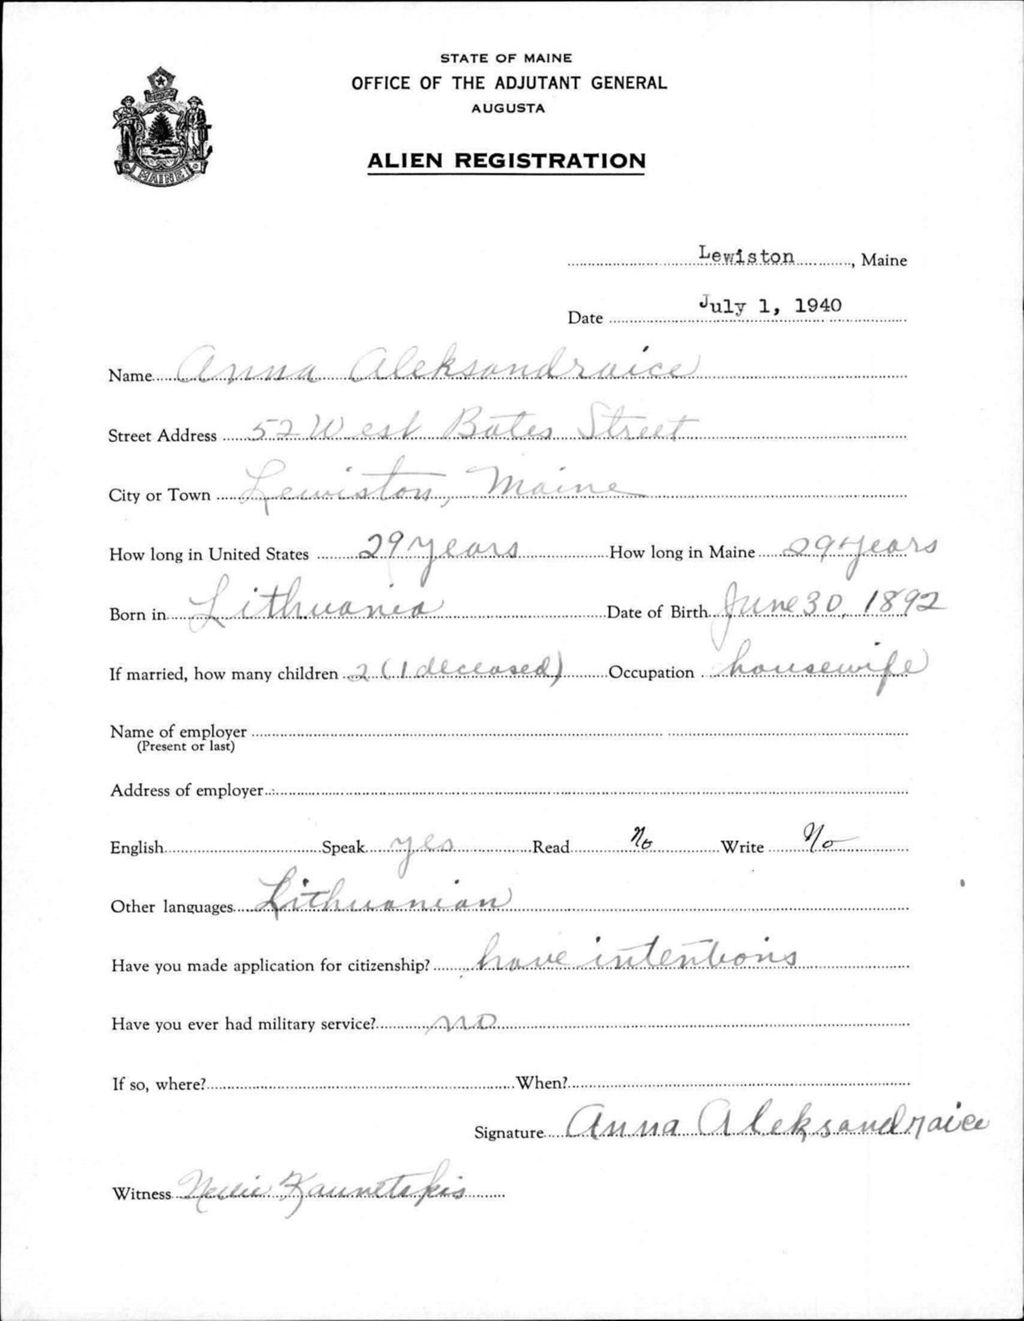 STATE OF MAINE
OFFICE OF THE ADJUTANT GENERAL
AUGUSTA
ALIEN REGISTRATION
MAINE
Lewiston, Maine
Date July 1, 1940
Name Anna Aleksandraice
Street Address 52 West Bates Street
City or Town Lewiston, Maine
How long in United States 29 years How long in Maine 29 years
Born in Lithuania Date of Birth June 30, 1892
If married, how many children 2 (1 deceased) Occupation housewife
Name of employer
(Present or last)
Address of employer
English Speak yes Read No Write No
Other languages Lithuanian
Have you made application for citizenship? have intentions
Have you ever had military service? no
If so, where? When?
Signature Anna Aleksandraice
Witness Nellie